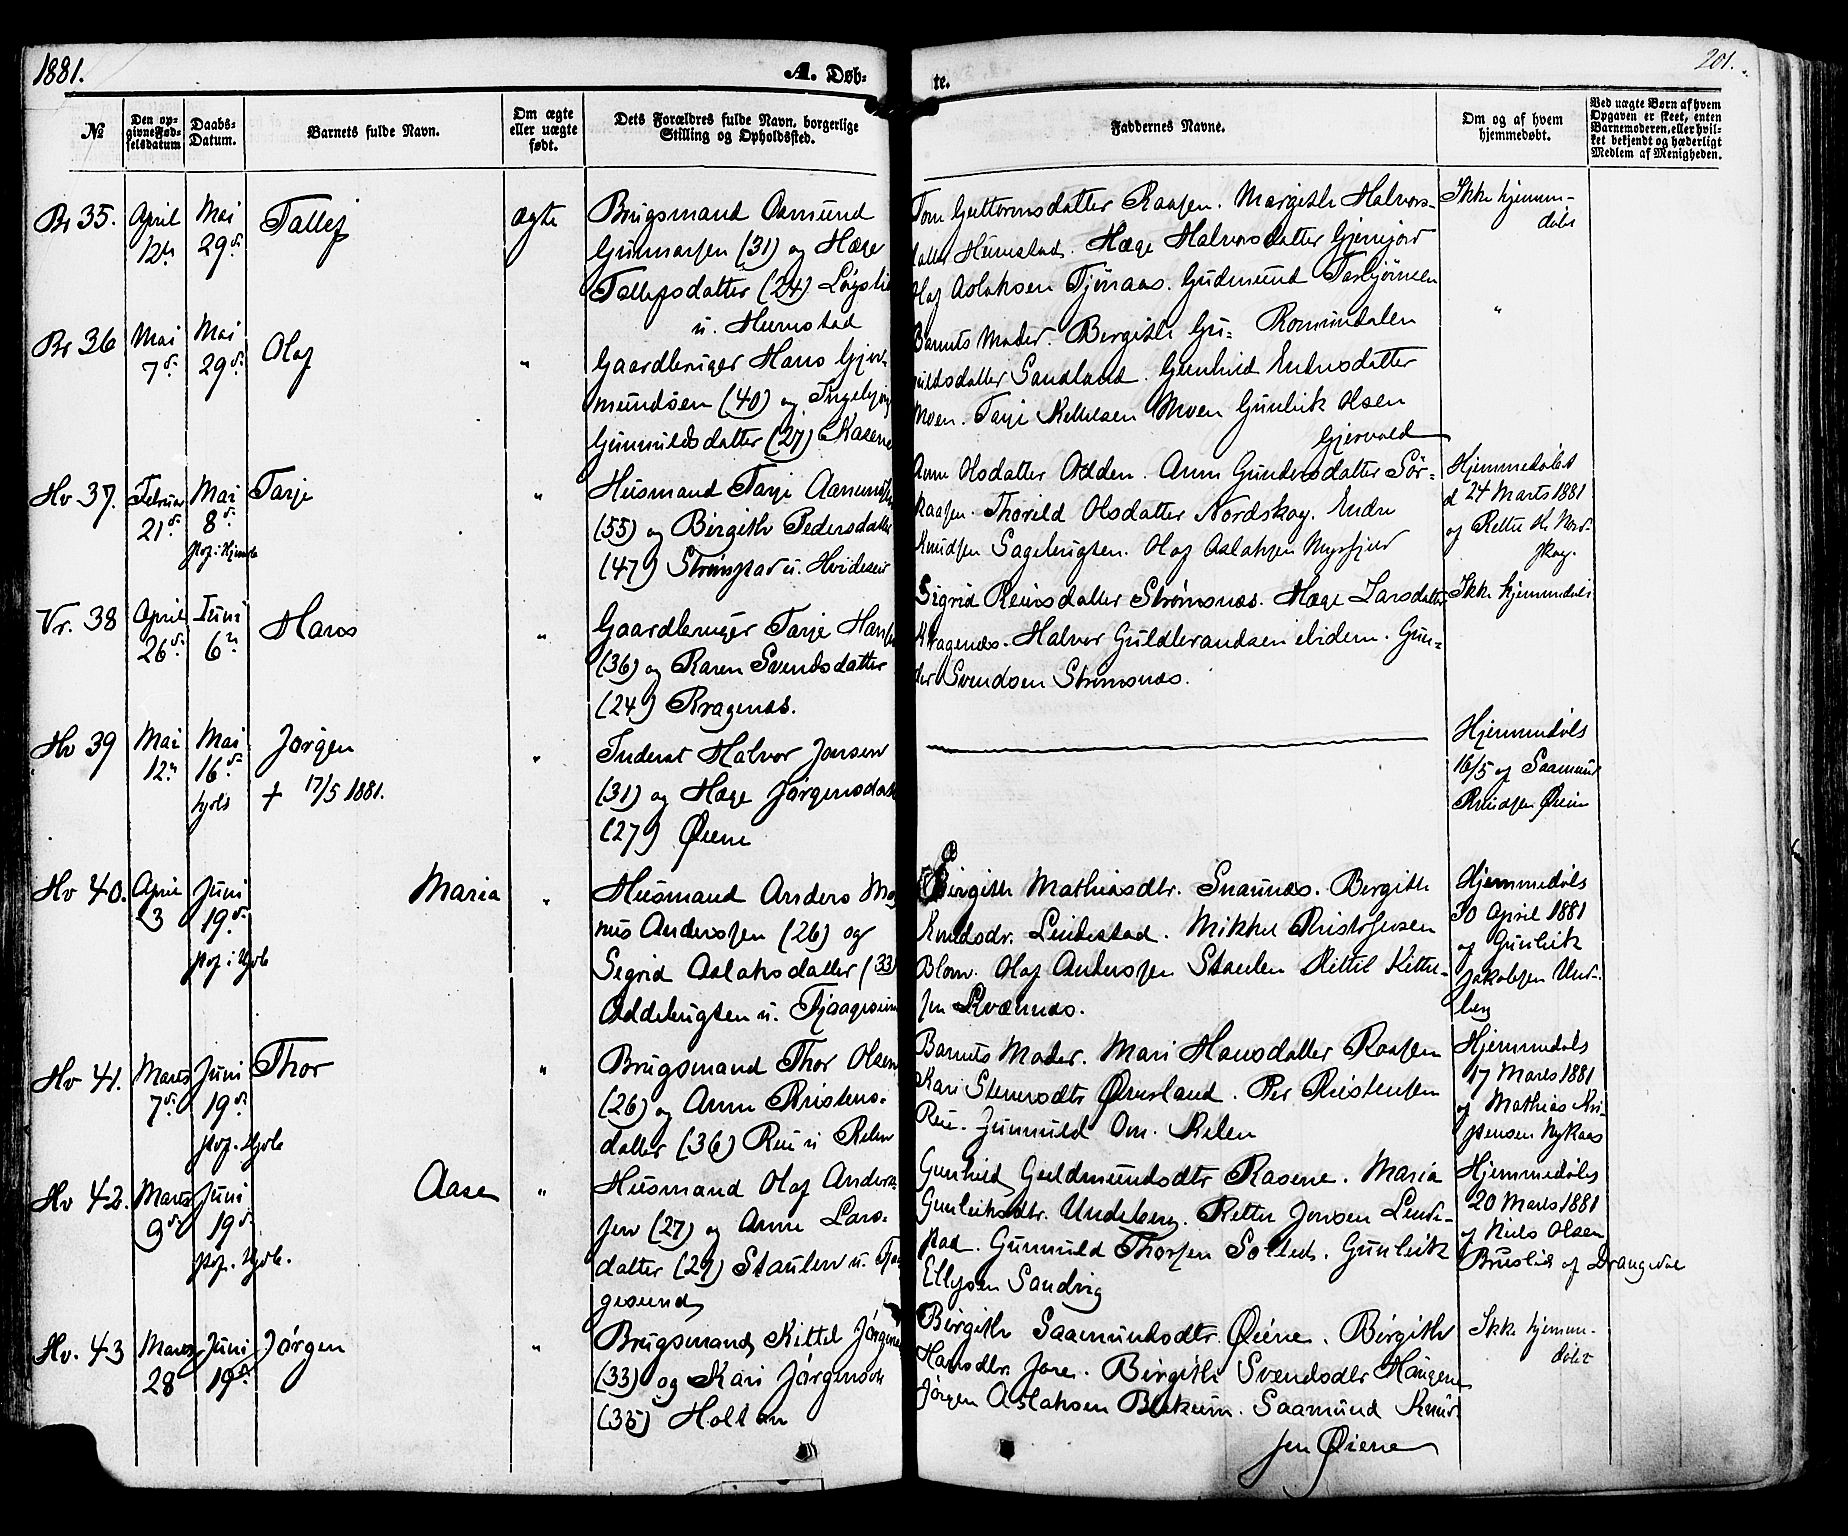 1881.
A. Døb-
te.
201.
№
Den op-
givne Fød-
selsdatum
Daabs-
Datum.
Barnets fulde Navn.
Om ægte
eller uægte
født.
Dets Forældres fulde Navn, borgerlige
Stilling og Opholdssted.
Faddernes Navne.
Om og af hvem
hjemmedøbt.
Ved uægte Børn af hvem
Opgaven er skeet, enten
Barnemoderen, eller hvil-
ket bekjendt og hæderligt
Medlem af Menigheden.
Br 35.
April
12te
Mai
29de
Tallef
ægte
Brugsmand Aamund
Gunnarsen (31) og Hæge
Tallefsdatter (24)
u. Humstad
Tone Guttormsdatter Raasen. Margith Halvors-
datter Humstad. Hæge Halvorsdatter
Olaf Aslaksen Tjønaas. Gudmund
Ikke hjemme-
døbt
Br 36
Mai
7de
Mai
29de
Olaf
"
Gaardbruger Hans Gjer-
mundsen (40) og Ingebjørg
Gunnuldsdatter (27) Kasene
Barnets Moder. Bergith Gu- Romundalen
nuldsdatter Sandland. Gunhild Endresdatter
Moen. Tarje Kettelsen Moen Gunleik Olsen
Gjervold
"
Hv 37.
Februar
21de
Mai
8de
præs. i Hjemde
Tarje
"
Husmand Tarje Aamundsen
(55) og Birgith Pedersdatter
(47) u. Hvideseid
Anne Olsdatter Odden. Anne Gundersdatter Sør-
raasen. Thorild Olsdatter Nordskog. Endre
Knudsen Sagebrugten. Olaf Aslaksen
Hjemmedøbt
d 24 Marts 1881
og H. Nord-
skog.
Vr. 38
April
26de
Juni
6te
Hans
"
Gaardbruger Tarje Hansen
(36) og Karen Svendsdatter
(24) Kragenæs.
Sigrid Reiersdatter Strømsnæs. Hæge Larsdatter
Kragenæs. Halvor Guldbrandsen ibidem. Gun-
der Svendsen Strømsnæs.
Ikke hjemmedøbt
Hv 39
Mai
12te
Mai
16de
hjdbt
Jørgen
† 17/5 1881.
"
Inderst Halvor Jonsen
(31) og Hæge Jørgensdatter
(27) Øiene
Hjemmedøbt
16/5 af Saamund
Knudsen Øiene
Hv 40.
April
3
Juni
19de
Maria
"
Husmand Anders Mag-
nus Anderssen (26) og
Sigrid Aslaksdatter (33)
Oddebugten u. Fjaagesund
Birgith Mathiasdtr. Snaunæs. Bergith
Knudsdr. Lindestad. Mikkel Kristofersen
Blom. Olaf Anderssen Staulen Kittil Kittel-
sen Kvænnæs.
Hjemmedøbt
30 April 1881
af Gunleik
Jakobsen Und-
berg
Hv 41.
Marts
7de
Juni
19de
Thor
"
Brugsmand Thor Olsen
(26) og Anne Kristens-
datter (36) Rui u
Barnets Moder. Mari Hansdatter Raasen
Kari Øverland. Per Kristensen
Rui. Gunnuld Om.
Hjemmedøbt
17 Marts 1881
af Mathias Kri-
stensen Nykaas
Hv 42.
Marts
9de
Juni
19de
Aase
"
Husmand Olaf Anders-
sen (27) og Anne Lars-
datter (29) Staulen u. Fjaa-
gesund
Gunhild Guldmundsdtr Kasene. Maria
Gunleiksdtr. Undeberg. Jonsen Linde-
stad. Gunnuld Thorsen Gunleik
Ellefsen Sandvig
Hjemmedøbt
20 Marts 1881
af Niels Olsen
af Drangedal
Hv. 43
Marts
28
Juni
19de
Jørgen
"
Brugsmand Kittel Jørgens
(33) og Kari Jørgensdtr
(35) Holtan
Birgith Saamundsdtr. Øiene. Birgith
Hansdtr. Jore. Birgith Svendsdtr Haugene
Jørgen Aslaksen Saamund Knud-
sen Øiene
Ikke hjemme-
døbt